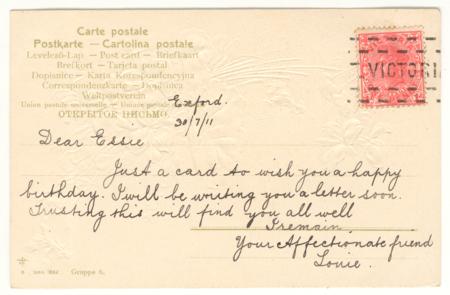 Carte postale
Postkarte – Cartolina postale
Levelező-Lap – Post card – Briefkaart
Brefkort – Tarjeta postal
Dopisnice – Karta Korespondencyjna
Correspondenzkarte – Dopisnica
Weltpostverein
Union postale universelle – Unione postale
ОТКРЫТОЕ ПИСЬМО.
VICTORI
Exford.
30/7/11
Dear Essie
Just a card to wish you a happy
birthday. I will be writing you a letter soon.
Trusting this will find you all well
I remain
Your Affectionate friend
Louie.
Gruppe 5.